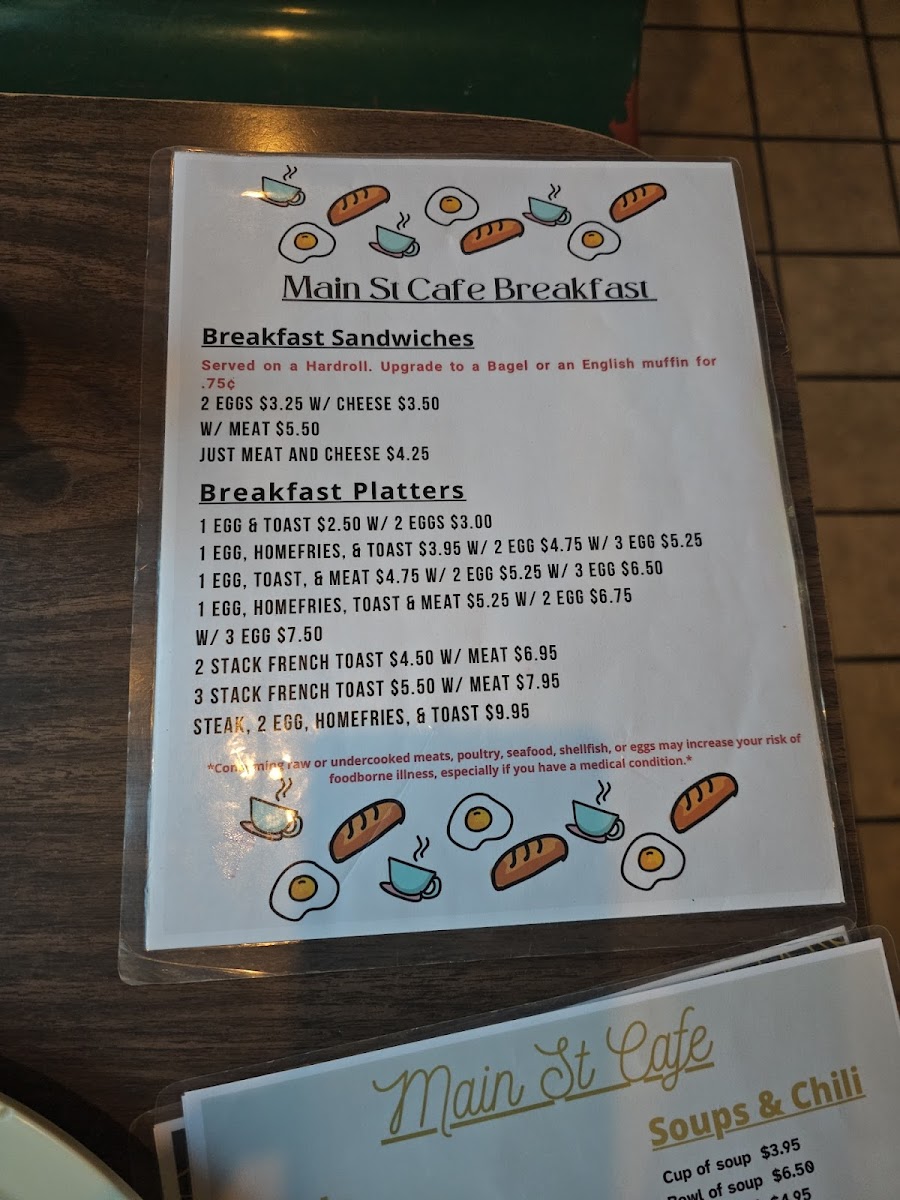 Main St Cafe Breakfast
Breakfast Sandwiches
Served on a Hardroll. Upgrade to a Bagel or an English muffin for
.75¢
2 EGGS $3.25 W/ CHEESE $3.50
W/ MEAT $5.50
JUST MEAT AND CHEESE $4.25
Breakfast Platters
1 EGG & TOAST $2.50 W/ 2 EGGS $3.00
1 EGG, HOMEFRIES, & TOAST $3.95 W/ 2 EGG $4.75 W/ 3 EGG $5.25
1 EGG, TOAST, & MEAT $4.75 W/ 2 EGG $5.25 W/ 3 EGG $6.50
1 EGG, HOMEFRIES, TOAST & MEAT $5.25 W/ 2 EGG $6.75
W/ 3 EGG $7.50
2 STACK FRENCH TOAST $4.50 W/ MEAT $6.95
3 STACK FRENCH TOAST $5.50 W/ MEAT $7.95
STEAK, 2 EGG, HOMEFRIES, & TOAST $9.95
*Consuming raw or undercooked meats, poultry, seafood, shellfish, or eggs may increase your risk of
foodborne illness, especially if you have a medical condition.*
Main St Cafe
Soups & Chili
Cup of soup $3.95
Bowl of soup $6.50
$4.95